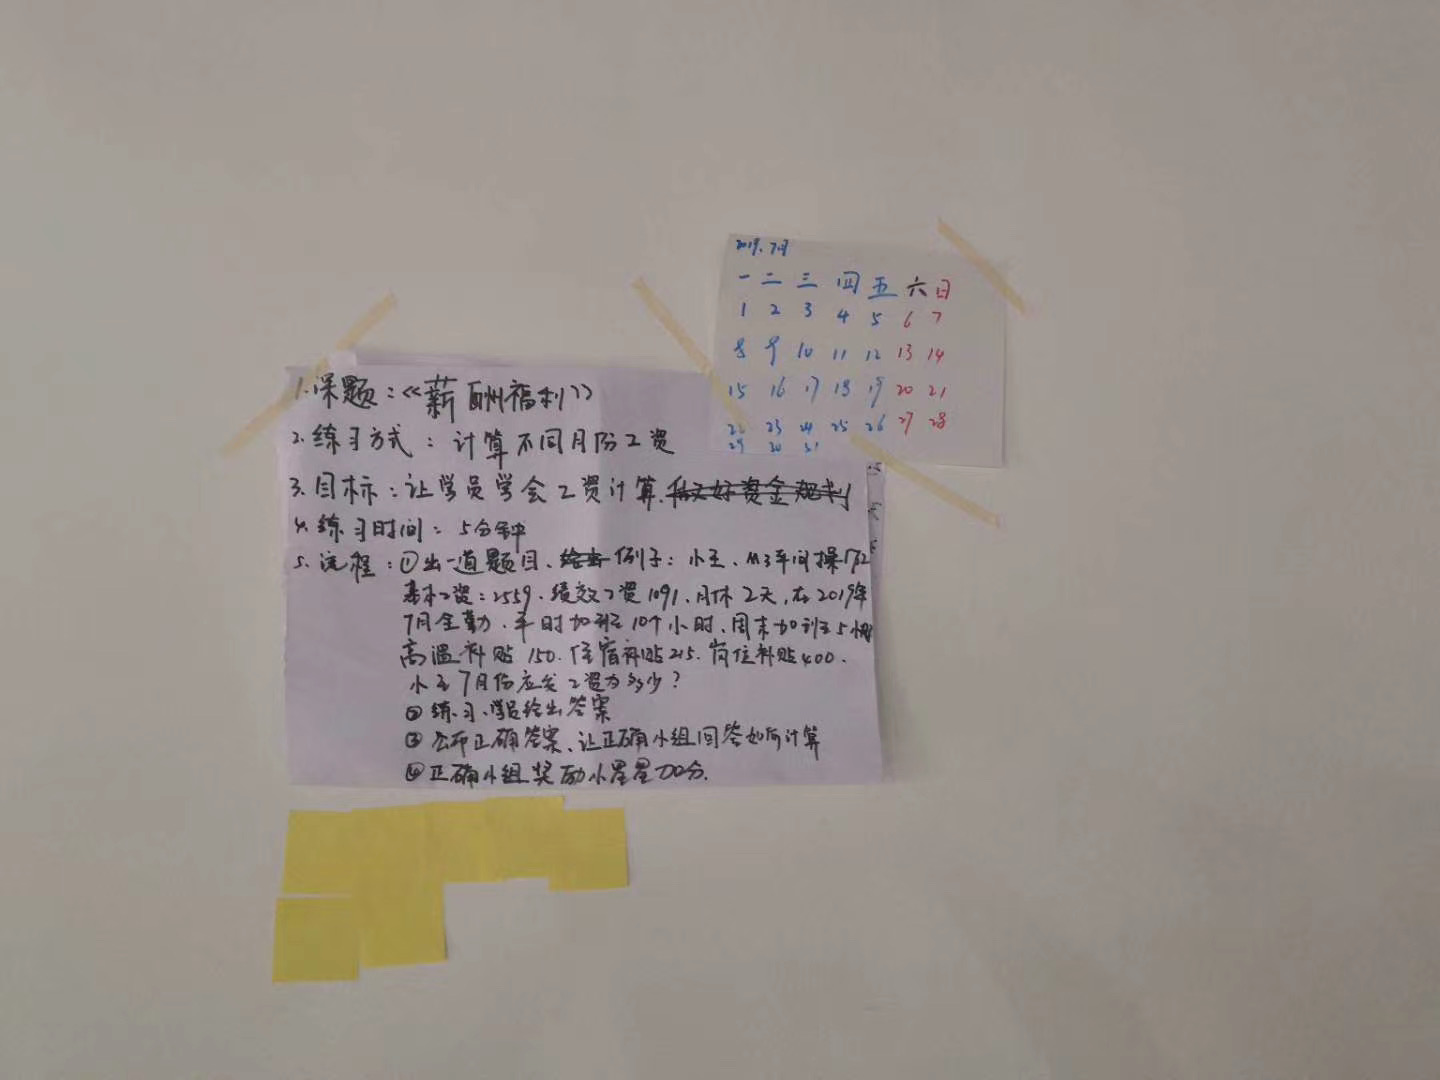 2019.7月
一 二 三 四 五 六 日
1 2 3 4 5 6 7
8 9 10 11 12 13 14
15 16 17 18 19 20 21
22 23 24 25 26 27 28
29 30 31
1.课题:《薪酬福利》
2.练习方式:计算不同月份工资
3.目标:让学员学会工资计算、做好资金规划
4.练习时间:5分钟
5.流程:①出一道题目、给出例子:小王、M3车间操作工
基本工资:2559.绩效工资1091.月休2天,在2019年
7月全勤、平时加班10个小时、周末加班5小时
高温补贴150.住宿补贴215.岗位补贴400.
小王7月份应发工资为多少?
②练习、学员给出答案
③公布正确答案、让正确小组回答如何计算
④正确小组奖励小星星加分.